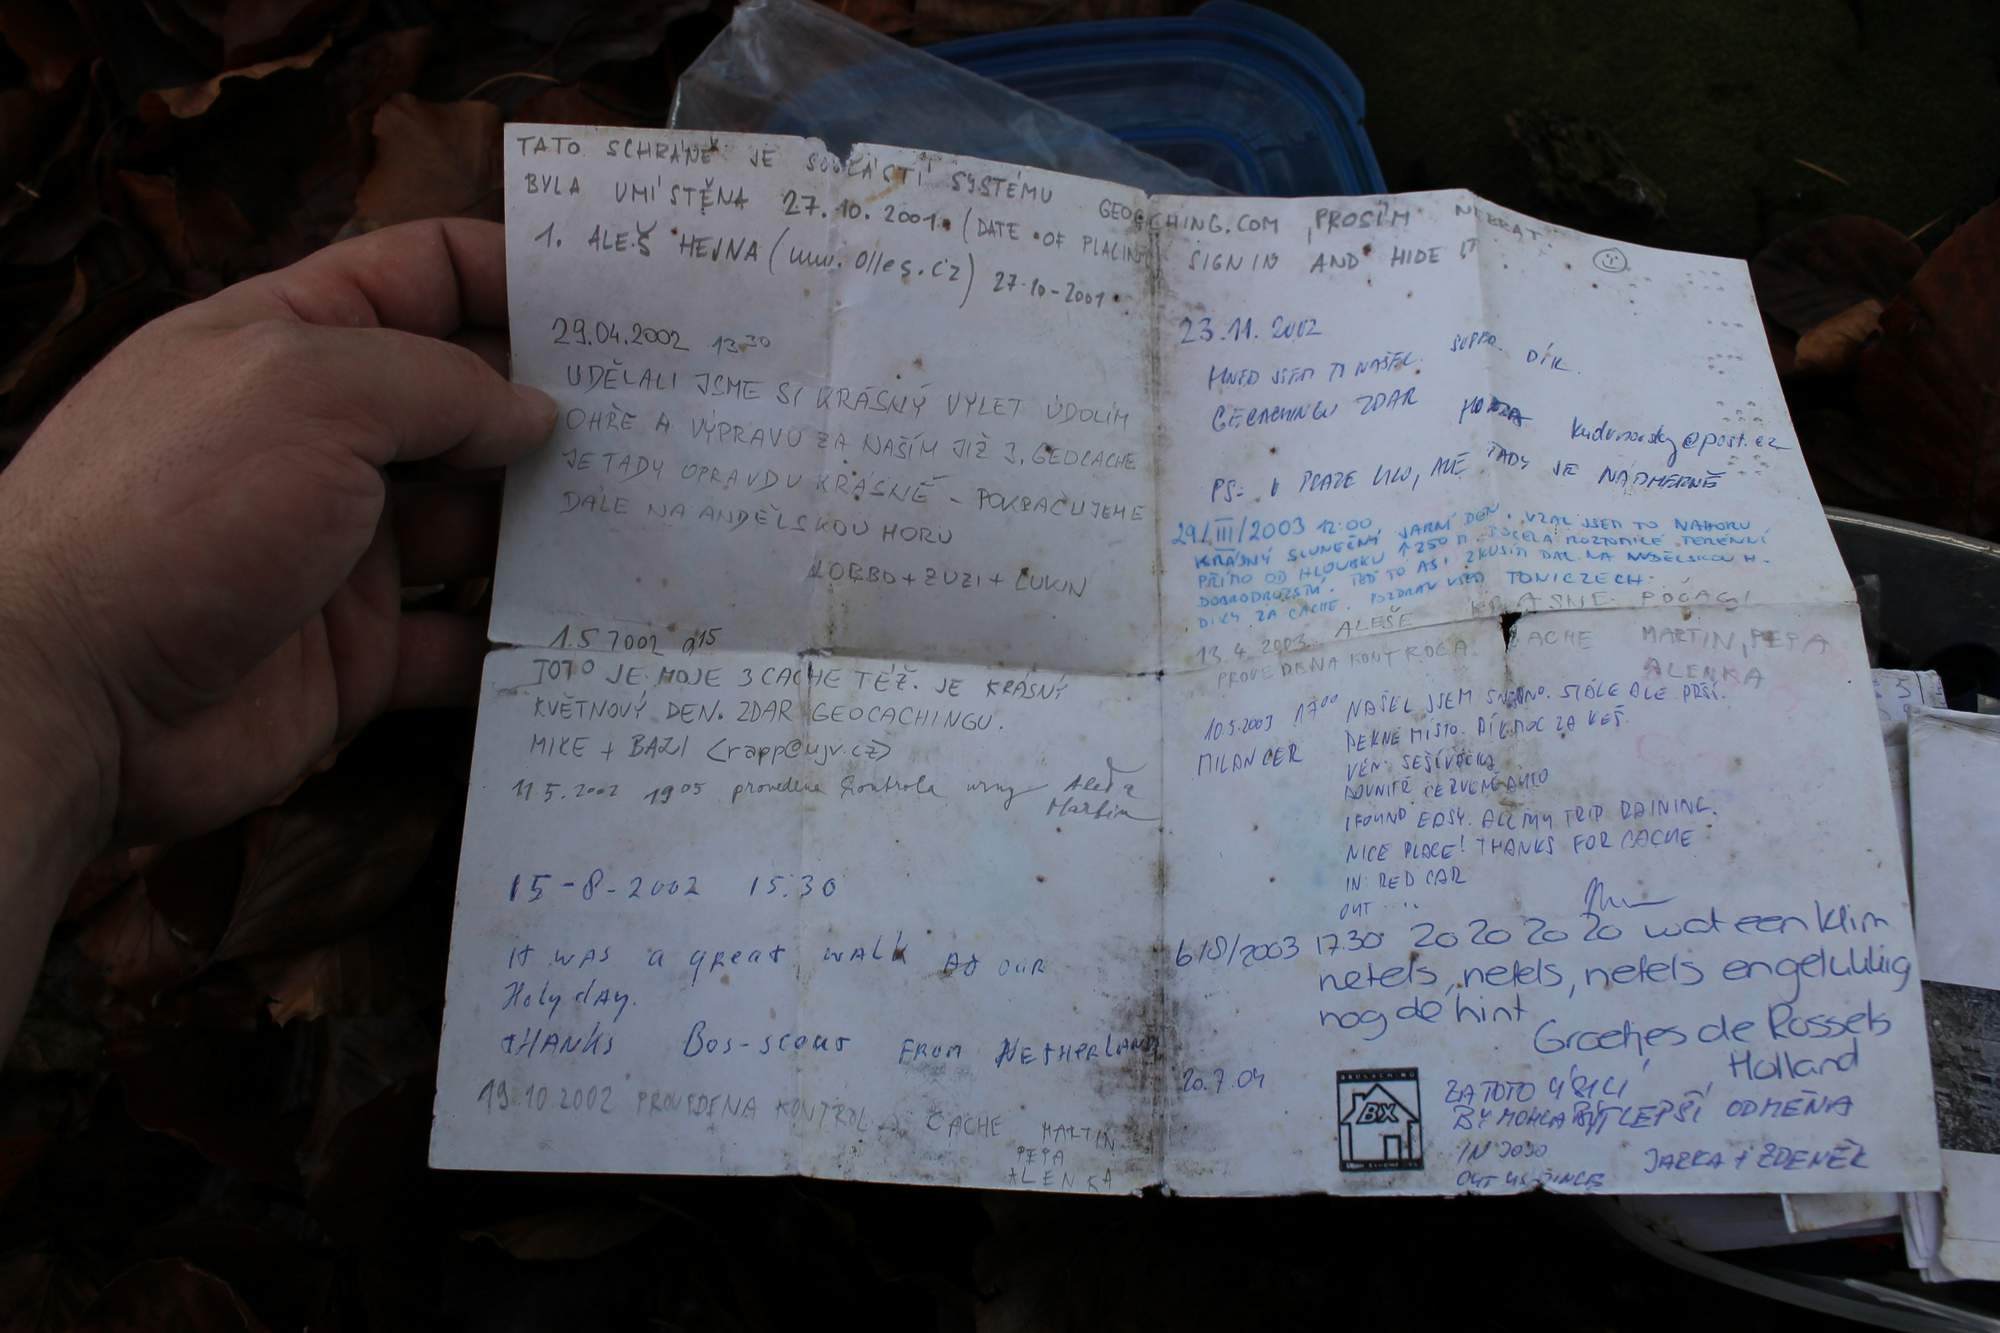 TATO SCHRÁNĚ JE SOUČÁSTÍ SYSTÉMU GEOCACHING.COM, PROSÍM NEBRAT.
BYLA UMÍSTĚNA 27.10.2001. (DATE OF PLACING) SIGN IN AND HIDE IT
1. ALEŠ HEJNA (www.olles.cz) 27-10-2001
29.04.2002 13:30
UDĚLALI JSME SI KRÁSNÝ VÝLET ÚDOLÍM
OHŘE A VÝPRAVU ZA NAŠÍM JIŽ 3. GEOCACHE
JE TADY OPRAVDU KRÁSNĚ - POKRAČUJEME
DÁLE NA ANDĚLSKOU HORU
+ ZUZI +
1.5 2002 9 15
TOTO JE MOJE 3 CACHE TÉŽ. JE KRÁSNÝ
KVĚTNOVÝ DEN. ZDAR GEOCACHINGU.
MIKE + BAZI <rapp@ujv.cz>
11 5.2002 19 05 provedena kontrola urny Aleš a
Martin
15-8-2002 15.30
It was a great walk at our
Holyday.
thanks Bos-scout from Netherland
19.10.2002 PROVEDENA KONTROLA CACHE MARTIN
PEPA
ALENKA
23.11.2002
HNED JSEM TI NAŠEL. SUPER. DÍK.
GEOCACHINGU ZDAR HONZA
@post.cz
PS: V PRAZE, TADY JE NÁDHERNĚ
29/III/2003 12:00
KRÁSNÝ SLUNEČNÝ JARNÍ DEN. VZAL JSEM TO NAHORU
PŘÍMO OD HLOUBKU ↑250 m. DOCELA ROZTOMILÉ TERÉNNÍ
DOBRODRUŽSTVÍ. TEĎ TO ASI ZKUSÍM DÁL NA ANDĚLSKOU H.
DÍKY ZA CACHE. POZDRAV TONICZECH.
13.4.2003. ALEŠE KRÁSNÉ POČASÍ
PROVEDENA KONTROLA CACHE MARTIN, PEPA
ALENKA
10.5.2003 17 00 NAŠEL JSEM SNADNO. STÁLE ALE PRŠÍ.
MILANCER PĚKNÉ MÍSTO. DÍK MOC ZA KEŠ.
VEN: SEŠÍVAČKA
DOVNITŘ ČERVENÉ AUTO
I FOUND EASY. ALL MY TRIP RAINING.
NICE PLACE! THANKS FOR CACHE
IN: RED CAR
OUT ....
6/8/2003 17.30 zo zo zo zo wat een klim
netels, netels, netels en gelukkig
nog de hint
Groetjes de Rossels
Holland
20.7.04
BX
ZA TOTO ÚSILÍ
BY MOHLA BÝT LEPŠÍ ODMĚNA
IN JOJO
OUT
JARKA + ZDENĚK